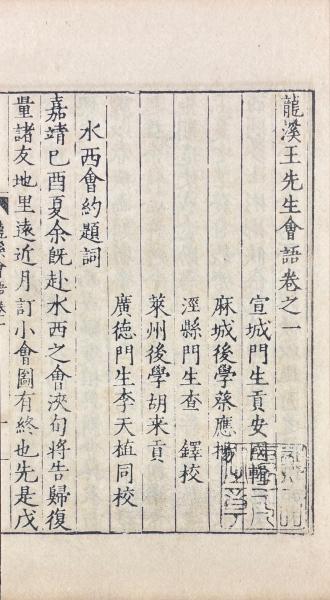 龍溪王先生會語卷之一
宣城門生貢安國輯
麻城後學蔡應揚
涇縣門生查鐸校
萊州後學胡来貢
廣德門生李天植同校
水西會約題詞
嘉靖己酉夏余既赴水西之會浹旬將告歸復
量諸友地里遠近月訂小會圖有終也先是戊
龍溪會語卷一